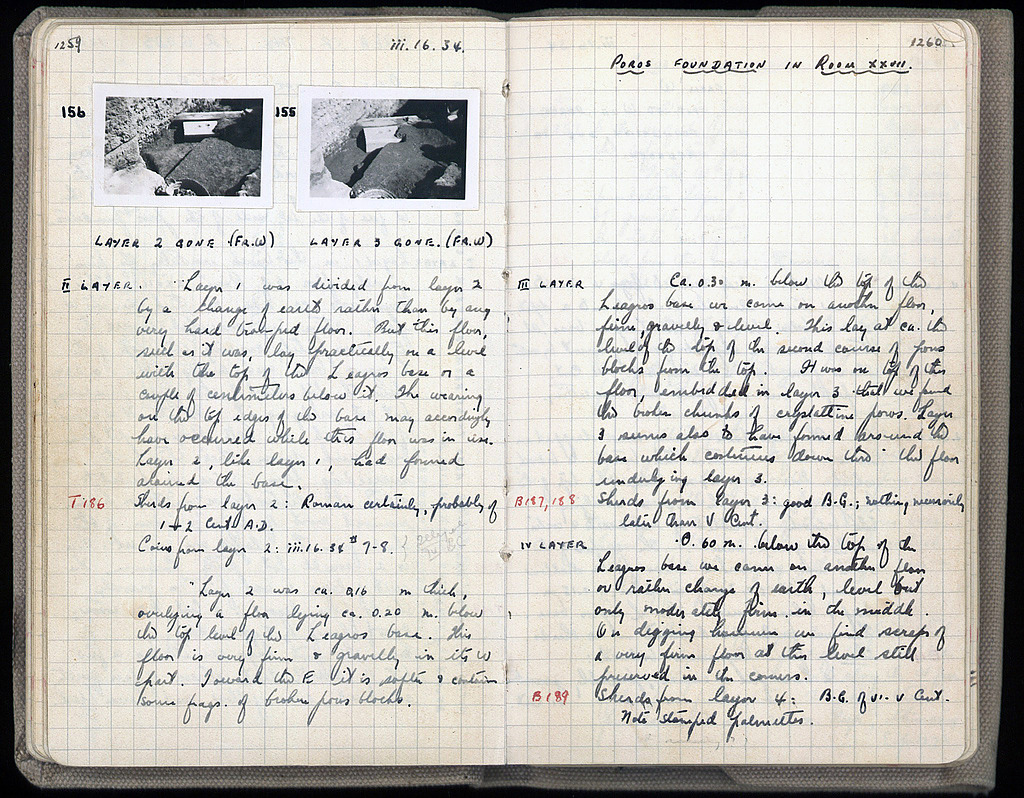 1259
iii.16.34.
156
155
LAYER 2 GONE (FR.W)
LAYER 3 GONE. (FR.W)
II LAYER. Layer 1 was divided from layer 2
by a change of earth rather than by any
very hard tramped floor. But this floor,
such as it was, lay practically on a level
with the top of the Leagros base or a
couple of centimetres below it. The wearing
on the top edges of the base may accordingly
have occurred while this floor was in use.
Layer 2, like layer 1, had formed
around the base.
T 186 Sherds from layer 2: Roman certainly, probably of
1-2 Cent A.D.
Coins from layer 2: iii.16.34 # 7-8.
Layer 2 was ca. 0.16 m thick,
overlying a floor lying ca. 0.20 m. below
the top level of the Leagros base. This
floor is very firm & gravelly in its W
part. Toward the E it is softer & contains
some frags. of broken poros blocks.
1260
POROS FOUNDATION IN ROOM XXVII.
III LAYER Ca. 0.30 m. below the top of the
Leagros base we came on another floor,
firm, gravelly & level. This lay at ca. the
level of the top of the second course of poros
blocks from the top. It was on top of this
floor, embedded in layer 3 that we found
the broken chunks of crystalline poros. Layer
3 seems also to have formed around the
base which continues down thro' the floor
underlying layer 3.
B187,188 Sherds from layer 3: good B-G.; nothing necessarily
later than V Cent.
IV LAYER 0.60 m. below the top of the
Leagros base we came on another floor
or rather change of earth, level but
only moderately firm in the middle.
On digging however we find scraps of
a very firm floor at this level still
preserved in the corners.
B189 Sherds from layer 4: B-G. of VI-V Cent.
Note stamped palmettes.